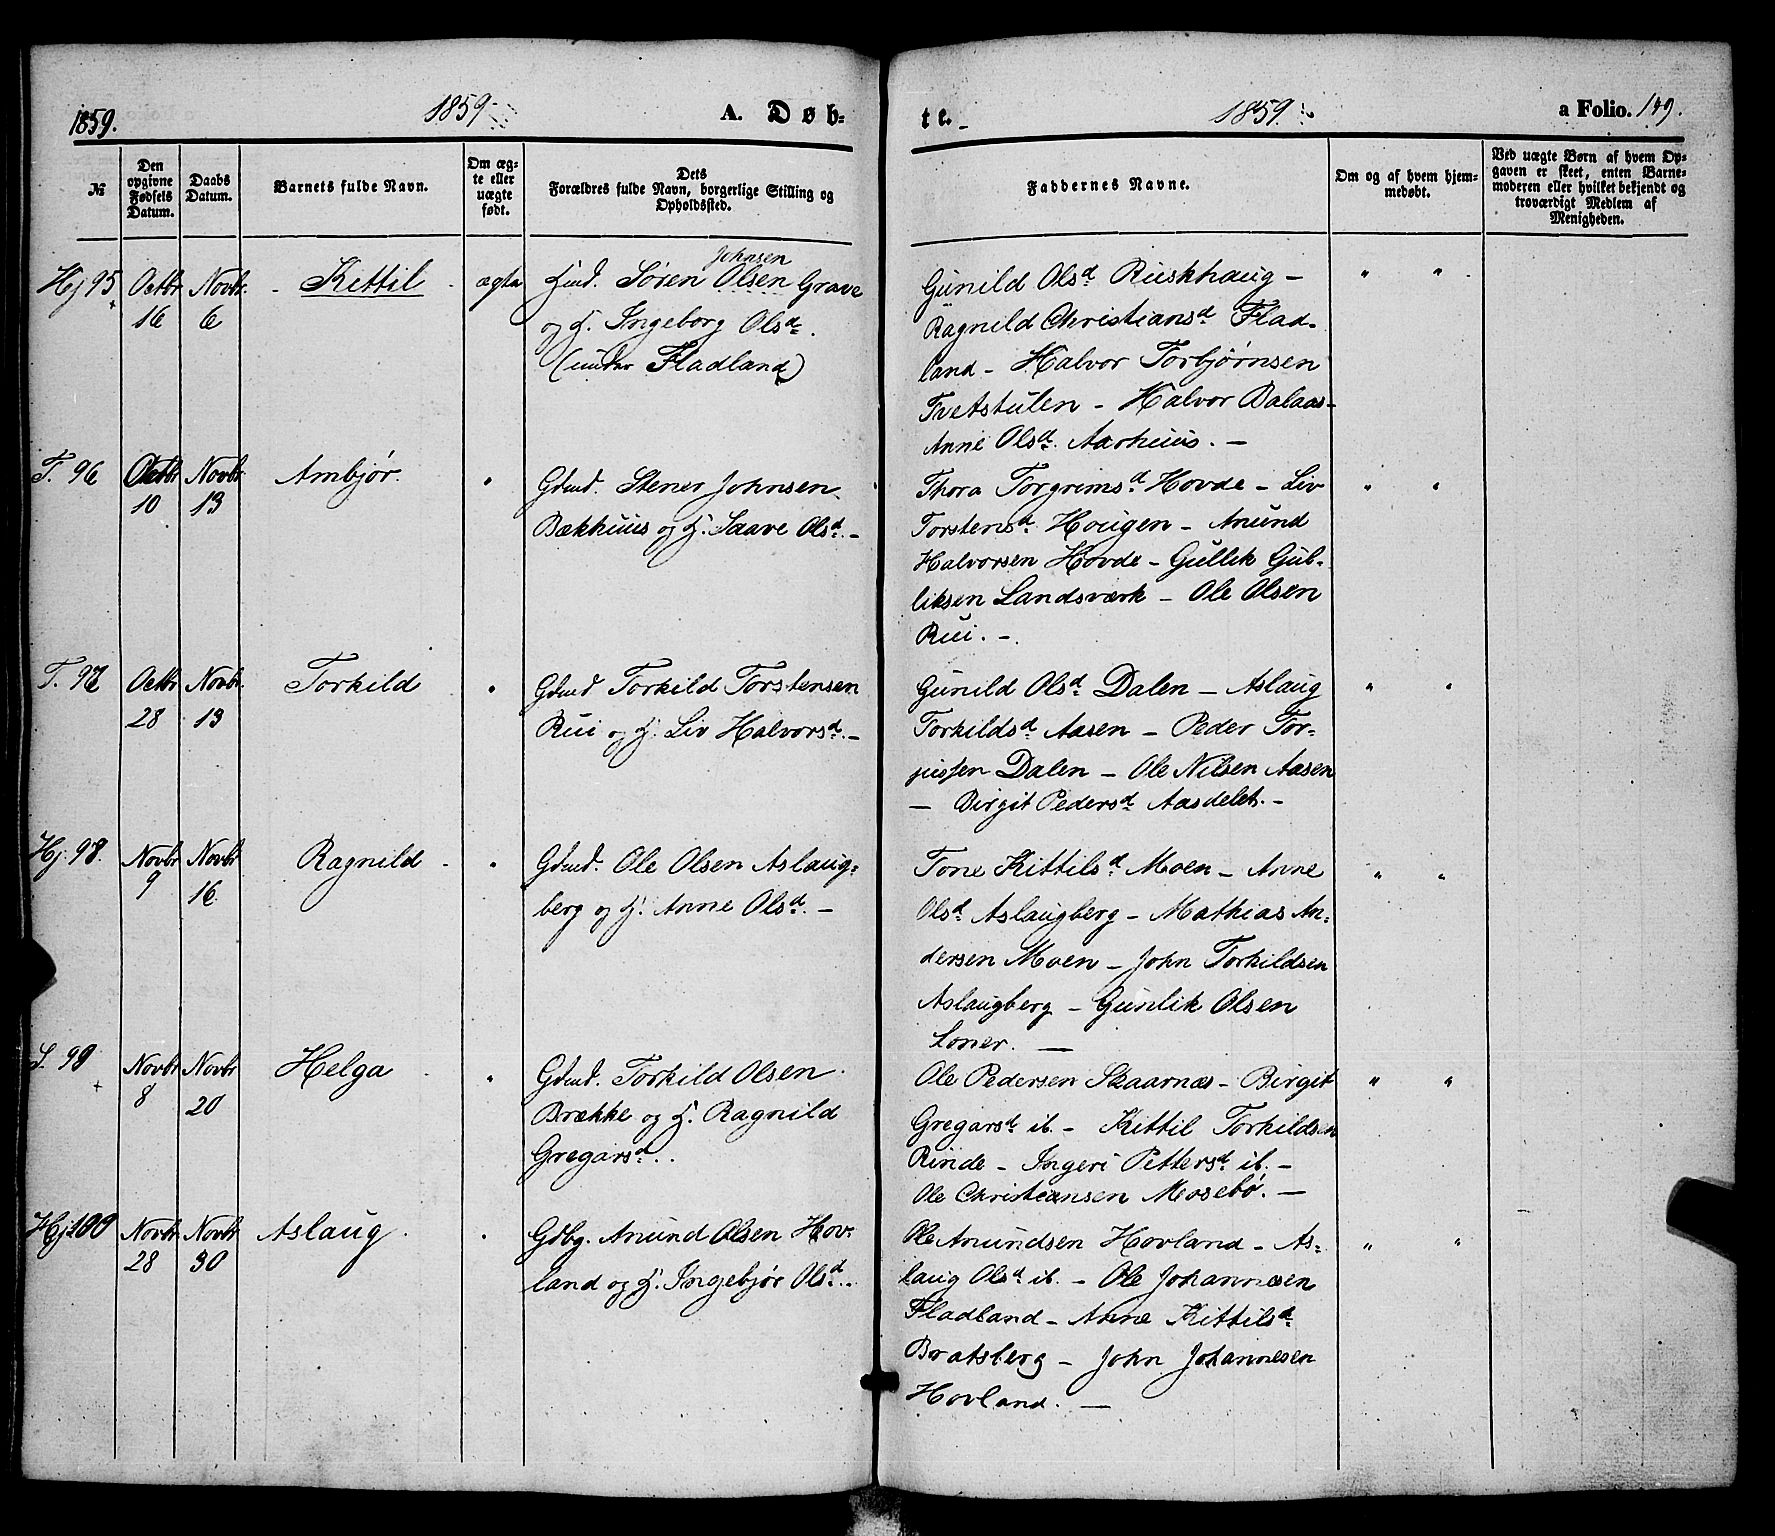 1859.
1859
A. Døb-
te.
1859.
a Folio. 149.
№
Den opgivne Fødsels Datum.
Daabs Datum.
Barnets fulde Navn.
Om ægte eller uægte født.
Dets Forældres fulde Navn, borgerlige Stilling og Opholdssted.
Faddernes Navne.
Om og af hvem hjemmedøbt.
Ved uægte Børn af hvem Opgaven er skeet, enten Barnemoderen eller hvilket bekjendt og troværdigt Medlem af Menigheden.
Hj 95 Octbr 16 Novbr. 6 Kittil ægte
Johnsen
Hmd. Søren Olsen Grave
og H. Ingeborg Olsd.
(under Fladland)
Gunild Olsd Ruskhaug -
Ragnild Christiansd Flad-
land - Halvor Torbjørnsen
Tvetstulen - Halvor Dalaas-
Anne Olsd. Aarhuus. -
" "
T. 96 Octbr 10 Novbr 13 Ambjør. "
Gdmd. Stener Johnsen
Bækhuus og H. Saave Olsd. -
Thora Torgrimsd Hovde - Liv
Torstensd Hougen - Anund
Halvorsen Hovde - Gullik Gul-
liksen Landsværk - Ole Olsen
Rui. -
" "
T. 97 Octbr 28 Novbr. 13 Torkild "
Gdmd Torkild Torstensen
Rui og H. Liv Halvorsd. -
Gunild Olsd Dalen - Aslaug
Torkildsd Aasen - Peder Tor-
jussen Dalen - Ole Nilsen Aasen
- Birgit Pedersd Aasdelet. -
" "
Hj. 98. Novbr 9 Novbr 16 Ragnild "
Gdmd. Ole Olsen Aslaug-
berg og H. Anne Olsd. -
Tone Kittilsd Moen - Anne
Olsd Aslaugberg - Mathias An-
dersen Moen - John Torkildsen
Aslaugberg - Gunlik Olsen
Loner. -
" "
S. 99 Novbr 8 Novbr 20 Helga "
Gdmd. Torkild Olsen
Brække og H. Ragnild
Gregarsd.
Ole Pedersen Skaarnæs - Birgit
Gregarsd ib. - Kittil Torkildsen
Rinde - Ingeri Pettersd ib. -
Ole Christiansen Mosebö. -
" "
Hj 100 Novbr 28 Novbr 30 Aslaug "
Gdbg. Anund Olsen Hov-
land og H. Ingebjør Olsd.
Ole Anundsen Hovland - As-
laug Olsd ib. - Ole Johannesen
Fladland - Anne Kittilsd
Bratsberg - John Johannesen
Hovland. -
" "